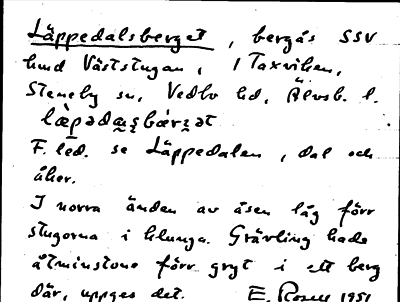 Läppedalsberget, bergås SSV
hmd Väststugan, i Taxviken,
Steneby sn, Vedbo hd, Älvsb. l.
F. led. se Läppedalen, dal och
åker.
I norra änden av åsen låg förr
stugorna i klunga. Grävling hade
åtminstone förr gryt i ett berg
där, uppges det. E. Rosell 1951